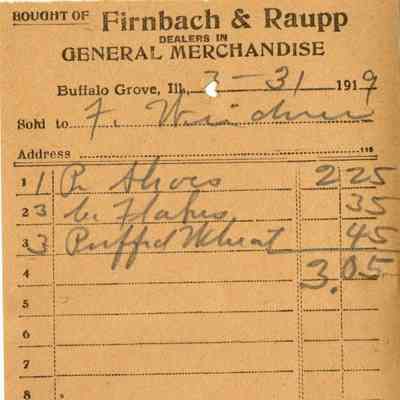 BOUGHT OF Firnbach & Raupp
DEALERS IN
GENERAL MERCHANDISE
Buffalo Grove, Ill., 3-31 1919
Sold to F. Weidner
Address 115
1 1 Pr Shoes 2 25
2 3 Flakes 35
3 3 Puffed Wheat 45
4 3.05
5
6
7
8